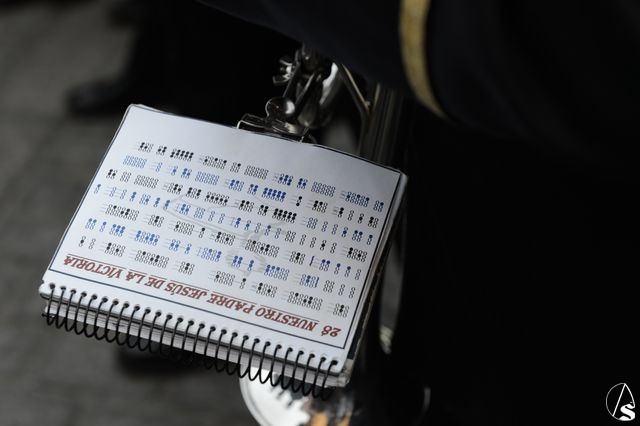 28 NUESTRO PADRE JESÚS DE LA VICTORIA